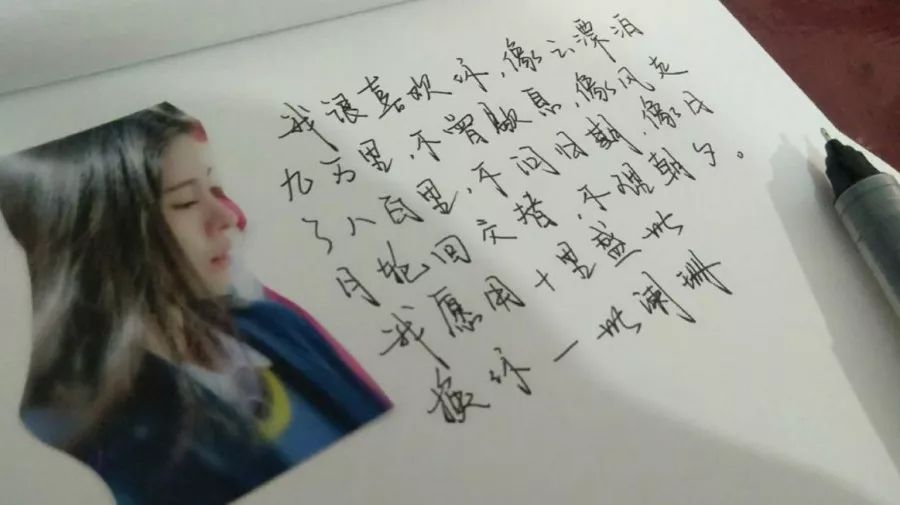 我很喜欢你,像云漂泊
九万里,不曾歇息,像风走
了八百里,不问归期,像日
月轮回交替,不理朝夕。
我愿用十里盛世
换你一世阑珊